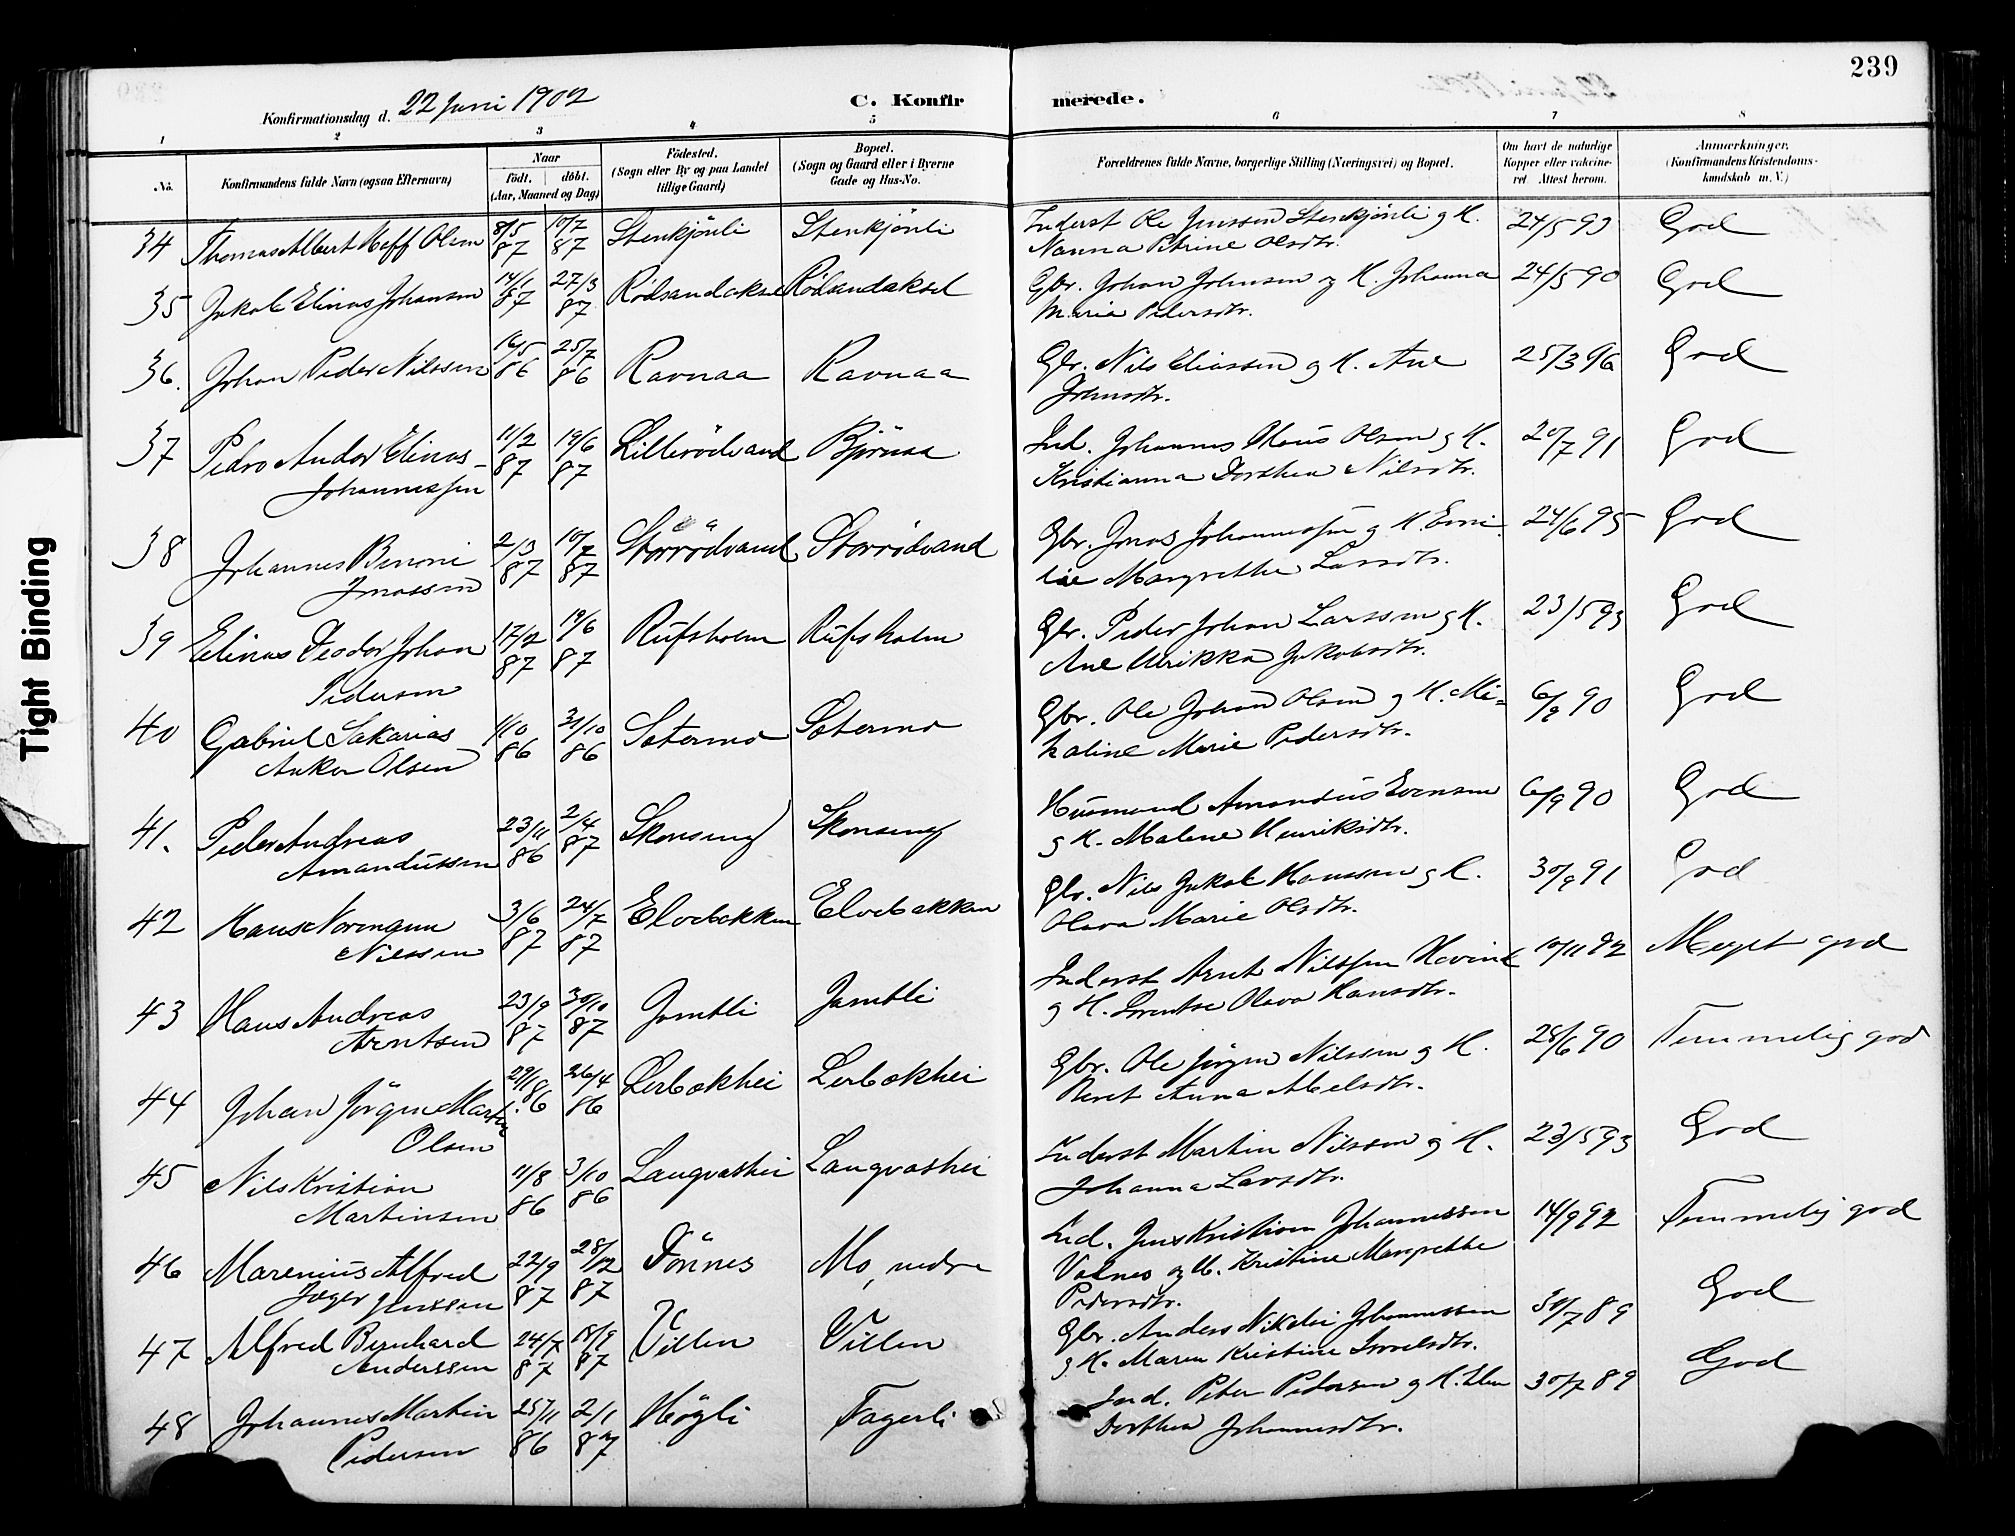 239
Konfirmationsdag d. 22 Juni 1902
C. Konfirmerede.
1 2 3 4 5 6 7 8
No.
Konfirmandens fulde Navn (ogsaa Efternavn)
Naar
födt. döbt.
(Aar, Maaned og Dag)
Födested.
(Sogn eller By og paa Landet tillige Gaard)
Bopæl.
(Sogn og Gaard eller i Byerne Gade og Hus-No.
Forældrenes fulde Navne, borgerlige Stilling (Næringsvei) og Bopæl.
Om havt de naturlige Kopper eller vakcineret Attest herom.
Anmærkninger.
(Konfirmandens Kristendomskundskab m. V.)
34 Thomas Albert Olsen 8/5 87 10/7 87 Stenkjönli Stenkjönli Inderst Ole Jenssen Stenkjönli g H. 24/5 93 God
Nanna Petrine Olsdtr.
35 Jakob Elinas Johansen 14/1 87 27/3 87 Rödsandaksel Rödsandaksel Gbr. Johan Johnsen og H. Johanna 24/5 90 God
Marie Pedersdtr.
36. Johan Peder Nilssen 16/5 86 25/7 86 Ravnaa Ravnaa Gbr. Nils Eliassen g H. Ane 25/3 96 God
Johnsdtr.
37 Pedro Andor Elinas- 11/2 87 19/6 87 Lillerödvand Björnaa Ind. Johannes Olaus Olsen g H. 20/7 91 God
Johannessen Kristianna Dorthea Nilsdtr.
38 Johannes Benoni 2/3 87 10/7 87 Storrödvand Storrödvand Gbr. Jonas Johannessen g H. Emi- 24/6 95 God
Jonassen lie Margrethe Larsdtr.
39 Elinas Teodor Johan 17/2 87 19/6 87 Rufsholm Rufsholm Gbr. Peder Johan Larssen g H. 23/5 93 God
Pedersen Ane Ulrikka Jakobsdtr.
40 Gabriel Sakarias 1/10 86 31/10 86 Sætermo Sætermo Gbr. Ole Johan Olsen g H. Mi- 6/9 90 God
Anker Olsen kaline Marie Pedersdtr.
41. Peder Andreas 23/11 86 2/4 87 Skonseng Skonseng Husmand Amandus Evensen 6/9 90 God
Amandussen g H. Malene Henriksdtr.
42 Hans Normann 3/6 87 24/7 87 Elvebakken Elvebakken Gbr. Nils Jakob Hanssen g H. 30/9 91 God
Nilssen Olava Marie Olsdtr.
43 Hans Andreas 23/9 87 30/10 87 Jamtli Jamtli Inderst Arnt Nilssen 10/11 92 Meget god
Arntsen g H. Lorentse Olava Hansdtr.
44 Johan Jörgen Martin 29/1 86 26/4 86 Lerbækhei Lerbækhei Gbr. Ole Jörgen Nilssen g H. 28/6 90 Temmelig god
Olsen Beret Anna Abelsdtr.
45 Nils Kristian 11/8 86 3/10 86 Langvashei Langvashei Inderst Martin Nilssen g H. 23/5 93 God
Martinsen Johanna Larsdtr.
46 Marenius Alfred 22/9 87 28/12 87 Dönnes Mo, nedre Ind. Jens Kristian Johannessen 14/9 92 Temmelig god
Jæger Jenssen Valnes og H. Kristine Margrethe
Pedersdtr.
47 Alfred Bernhard 24/7 87 18/9 87 Villen Villen Gbr. Anders Nikolai Johannessen 30/7 89 God
Anderssen g H. Maren Kristine Israelsdtr.
48 Johannes Martin 25/11 86 2/1 87 Högli Fagerli Ind. Peter Pedersen g H. Elen 30/7 89 God
Pedersen Dorthea Johannesdtr.
Tight Binding